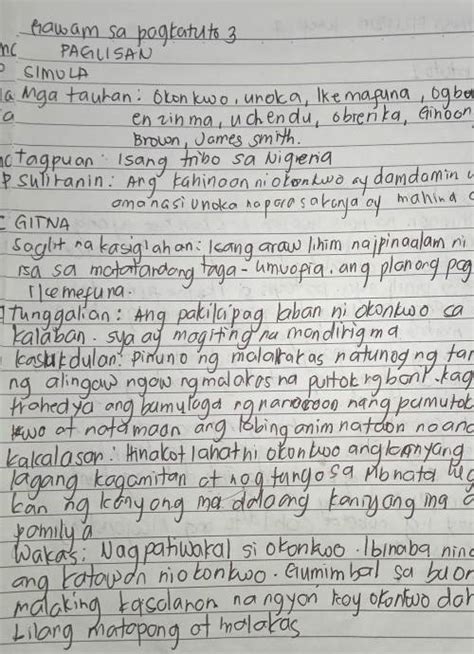 Gawaim sa pagkatuto 3
PAGLISAN
SIMULA
Mga tauhan: Okonkwo, unoka, Ikemafuna, Ogbo
enzinma, uchendu, obierika, Ginoon
Brown, James Smith.
Tagpuan: Isang tribo sa Nigeria
Suliranin: Ang kahinaan ni okonkwo ay damdamin
ama na si unoka na para sa kanya ay mahina
GITNA
Saglit na kasiglahan: Isang araw lihim na ipinaalam ni
isa sa matatandang taga-umuopia. ang planong pag
Ikemefuna.
Tunggalian: Ang pakikipag laban ni okonkwo sa
kalaban. sya ay magiting na mandirigma
Kasukdulan: Pinuno ng malalakas na tunog ng tam
ng alingaw ngaw ng malakas na putok ng baril. kag
trahedya ang bumulaga ng naroroon nang pumutok
kwo at natamaan ang labing anim na taon no ana
Kakalasan: Hinakot lahat ni okonkwo ang kanyang
lagang kagamitan at nag tungo sa Mbnata
kan ng kanyang ina dala ang kaniyang mg a
pamilya
Wakas: Nagpatiwakal si okonkwo. Ibinaba nin
ang katawan ni okonkwo. Gumimbal sa buon
malaking kasalanan na ngyari kay okonkwo dah
Lilang matapang at malakas